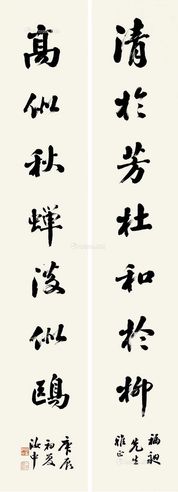 清於芳杜和於柳
福昶
先生
雅正
高似秋蟬澹似鷗
庚辰
初夏
汝申